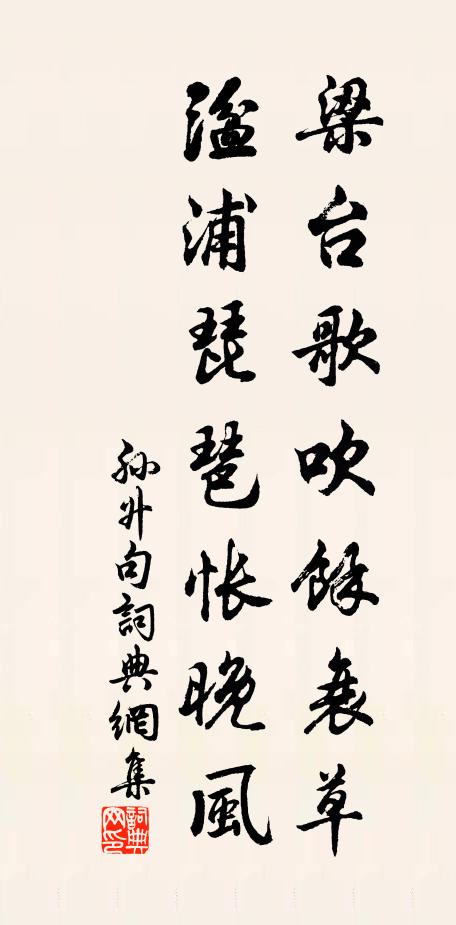 梁台歌吹餘衰草
湓浦琵琶悵晚風
孙升句詞典網集
詞典網印